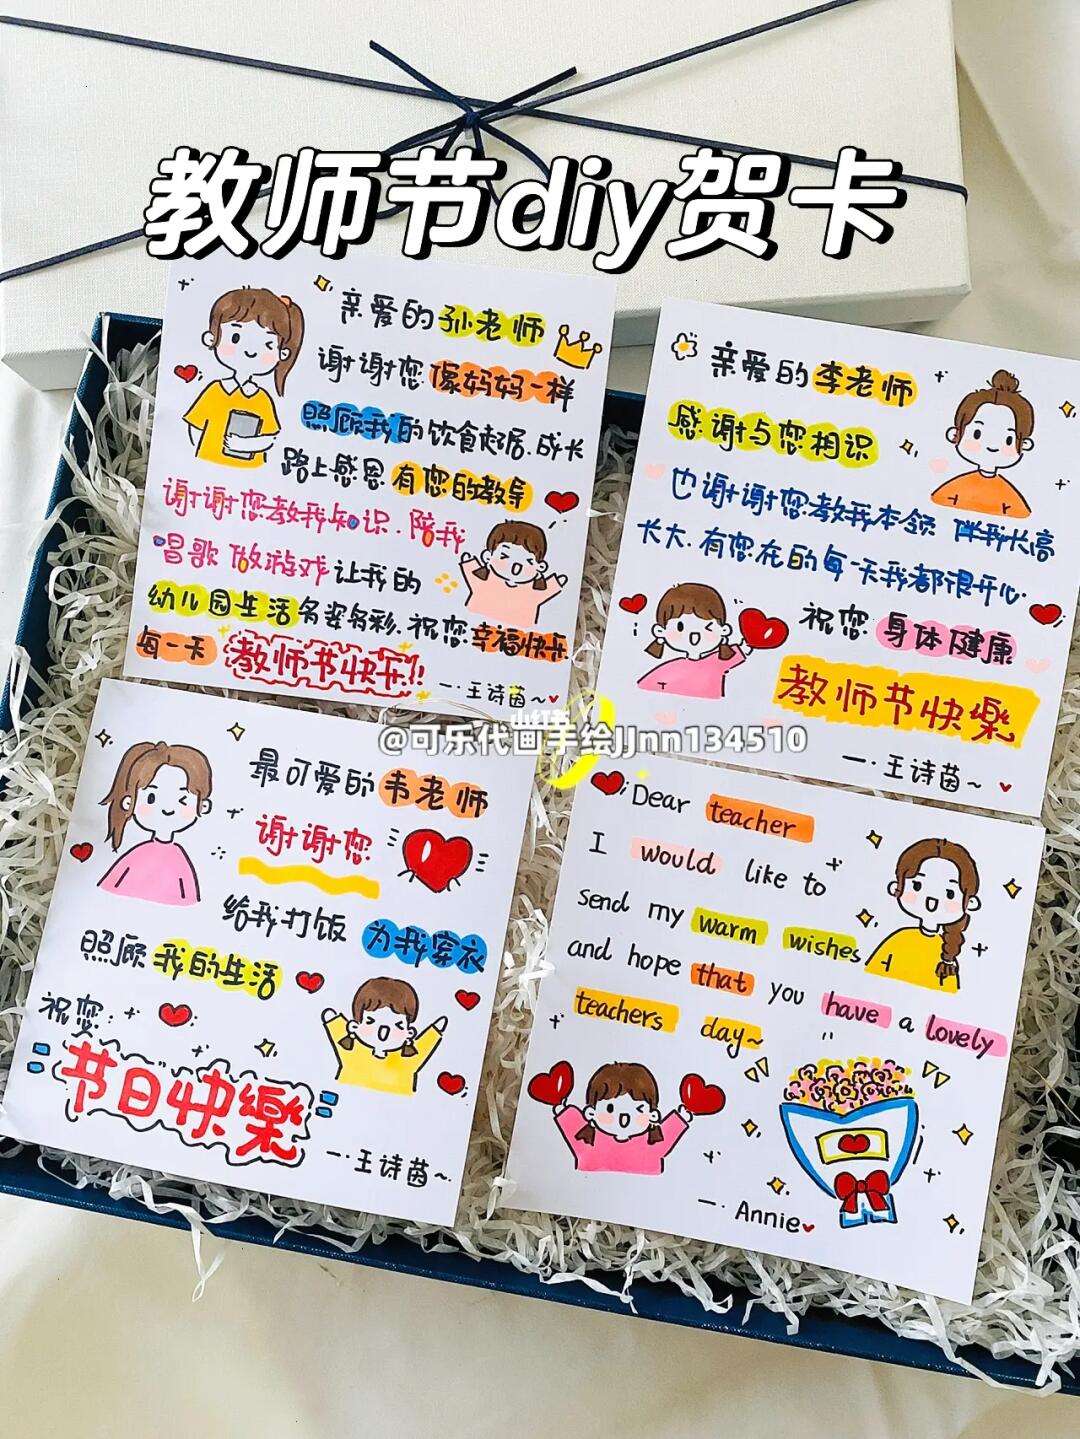 教师节diy贺卡
亲爱的孙老师
谢谢您像妈妈一样
照顾我的饮食起居.成长
路上感恩有您的教导
谢谢您教我知识.陪我
唱歌做游戏让我的
幼儿园生活多姿多彩.祝您幸福快乐
每一天教师节快乐!!
一.王诗茵~
亲爱的李老师
感谢与您相识
也谢谢您教我本领 伴我长高
长大.有您在的每一天我都很开心.
祝您身体健康
教师节快樂
一.王诗茵~
@可乐代画手绘JJnn134510
最可爱的韦老师
谢谢您
给我打饭 为我穿衣
照顾我的生活
祝您:
节日快樂
一.王诗茵~
Dear teacher
I would like to
send my warm wishes
and hope that you have a lovely
teachers day~
一.Annie